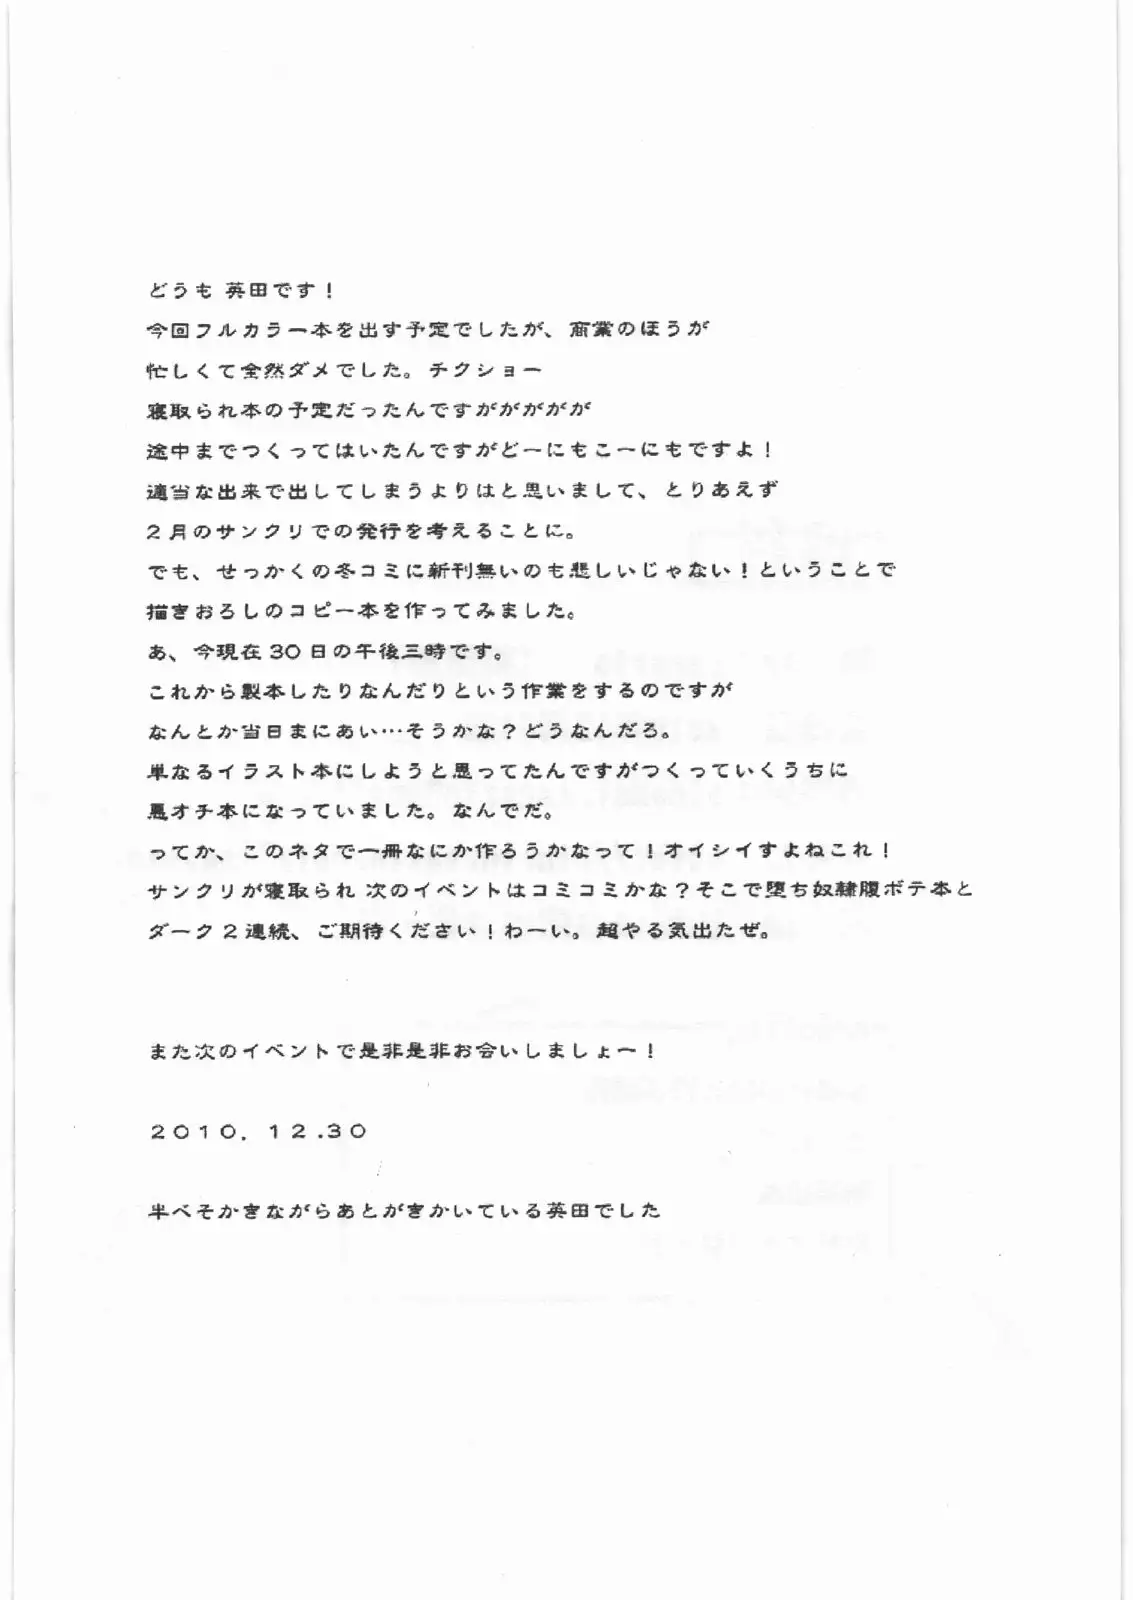 どうも 英田です！
今回フルカラー本を出す予定でしたが、商業のほうが
忙しくて全然ダメでした。チクショー
寝取られ本の予定だったんですががががが
途中までつくってはいたんですがどーにもこーにもですよ！
適当な出来で出してしまうよりはと思いまして、とりあえず
２月のサンクリでの発行を考えることに。
でも、せっかくの冬コミに新刊無いのも悲しいじゃない！ということで
描きおろしのコピー本を作ってみました。
あ、今現在 30 日の午後三時です。
これから製本したりなんだりという作業をするのですが
なんとか当日まにあい…そうかな？どうなんだろ。
単なるイラスト本にしようと思ってたんですがつくっていくうちに
悪オチ本になっていました。なんでだ。
ってか、このネタで一冊なにか作ろうかなって！オイシイすよねこれ！
サンクリが寝取られ 次のイベントはコミコミかな？そこで堕ち奴隷腹ボテ本と
ダーク２連続、ご期待ください！わーい。超やる気出たぜ。
また次のイベントで是非是非お会いしましょー！
２０１０．１２.３０
半べそかきながらあとがきかいている英田でした